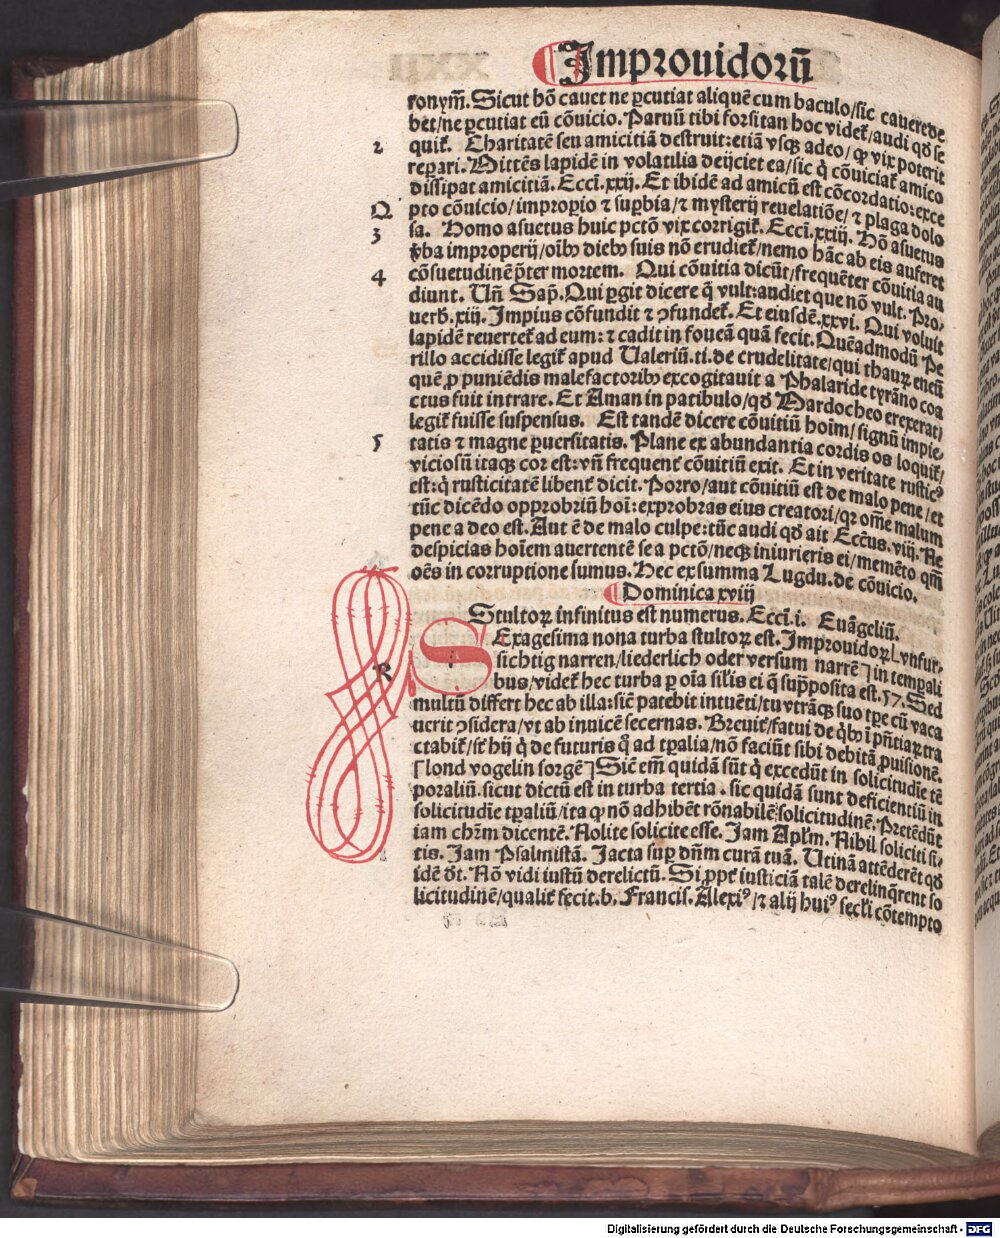 Improuidorū
ronym̄. Sicut hō cauet ne ꝑcutiat aliquē cum baculo/sic cauere de
bet/ne ꝑcutiat eū cōuicio. Paruū tibi forsitan hoc videt᷑/audi qđ se
2 quit᷑. Charitatē seu amicitiā destruit: etiā vsqꝫ adeo/ꝙ vix poterit
reꝑari. Mittēs lapidē in volatilia deijciet ea/sic q̇ cōuiciat᷑ amico
dissipat amicitiā. Eccī. xxij. Et ibidē ad amicū est cōcordatio: exce
Q pto cōuicio/impropio ⁊ suꝑbia/⁊ mysterij reuelatiōe/⁊ plaga dolo
3 sa. Homo asuetus huic pctō vix corrigit᷑. Eccī. xxiij. Hō asuetus
v̄ba improperij/oib⁹ dieb⁹ suis nō erudiet᷑/nemo hāc ab eis auferet
4 cōsuetudinē p̄ter mortem. Qui cōuitia dicūt/frequēter cōuitia au
diunt. Vn̄ Sap̄. Qui ꝑgit dicere q̄ vult: audiet que nō vult. Pro/
uerb̄. xiij. Impius cōfundit ⁊ ꝯfundet᷑. Et eiusdē. xxvi. Qui voluit
lapidē reuertet᷑ ad eum: ⁊ cadit in foueā quā fecit. Quēadmodū Pe
rillo accidisse legit᷑ apud Ualeriū. ti. de crudelitate/qui thauꝝ eneū
quē ꝓ puniēdis malefactorib⁹ excogitauit a Phalaride tyrāno coa
ctus fuit intrare. Et Aman in patibulo/qđ Mardocheo erexerat/
legit᷑ fuisse suspensus. Est tandē dicere cōuitiū hoīm/signū impie/
5 tatis ⁊ magne ꝑuersitatis. Plane ex abundantia cordis os loquit᷑/
viciosū itaqꝫ cor est: vn̄ frequent᷑ cōuitiū exit. Et in veritate rustic⁹
est: q̇ rusticitatē libent᷑ dicit. Porro/aut cōuitiū est de malo pene/et
tūc dicēdo opprobriū hoī: exprobras eius creatori/qꝛ om̄e malum
pene a deo est. Aut ē de malo culpe: tūc audi qđ ait Ecc̄us. viij. Ne
despicias hoīem auertentē se a pctō/neqꝫ iniurieris ei/memēto qm̄
oēs in corruptione sumus. Hec ex summa Lugdu. de cōuicio.
Dominica xviij
Stultoꝝ infinitus est numerus. Eccī. i. Euāgeliū.
SExagesima nona turba stultoꝝ est. Improuidoꝝ[vnfur/
R sichtig narren/liederlich oder versum narrē] in temꝑali
bus/videt᷑ hec turba ꝑ oīa silīs ei q̄ suꝑposita est. 57. Sed
multū differt hec ab illa: sic̄ patebit intuēti/tu vtrāqꝫ suo tꝑe cū vaca
uerit ꝯsidera/vt ab inuicē secernas. Breuit᷑/fatui de q̇b⁹ ī p̄ntiaꝝ tra
ctabit᷑/st᷑ hij q̇ de futuris q̊ ad tꝑalia/nō faciūt sibi debitā ꝓuisionē.
[lond vogelin sorgē] Sic̄ em̄ quidā sūt q̇ excedūt in solicitudīe tē
poraliū. sicut dictū est in turba tertia. sic quidā sunt deficientiū in
solicitudīe tꝑaliū/ita ꝙ nō adhibēt rōnabilē solicitudinē. Pretēdūt
iam chr̄m dicentē. Nolite solicite esse. Jam Apl̄m. Nihil soliciti si/
tis. Jam Psalmistā. Jacta suꝑ dn̄m curā tuā. Utinā attēderēt qđ
idē d̄t. Nō vidi iustū derelictū. Si ꝓpt᷑ iusticiā talē derelinq̄rent so
licitudinē/qualit᷑ fecit. b. Francis. Alexi⁹/⁊ alij hui⁹ secl̄i cōtempto
Digitalisierung gefördert durch die Deutsche Forschungsgemeinschaft - DFG